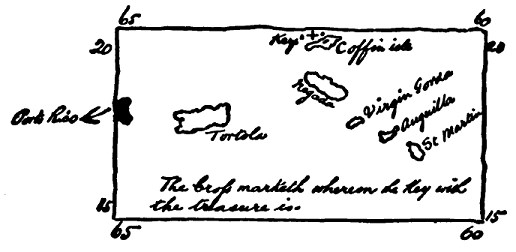 65 60
20 20
Key + Coffin isle
Porto Rico
Anegada
Virgin Gorda
Anguilla
St Martin
Tortola
The Cross marketh wherein de Key with
the treasure is.
15 15
65 60